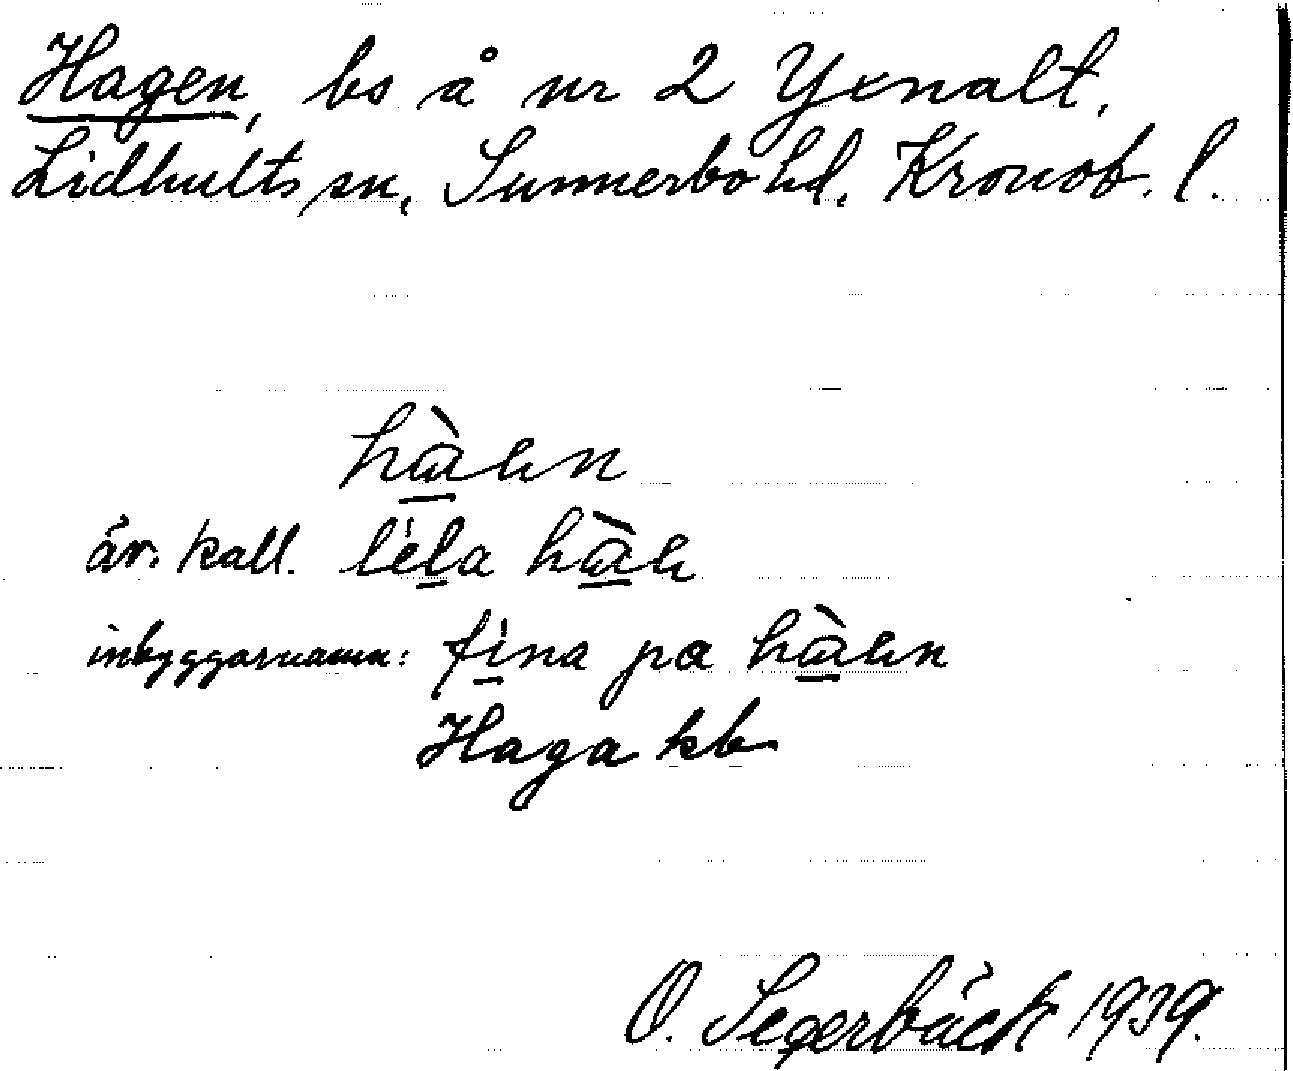 Hagen, bs å nr 2 Yxnalt,
Lidhults sn, Sunnerbo hd, Kronob. l.
hàen
äv. kall. lela hàe
inbyggarnamn: fina pa hàen
Haga kb
O. Segerbäck 1939.